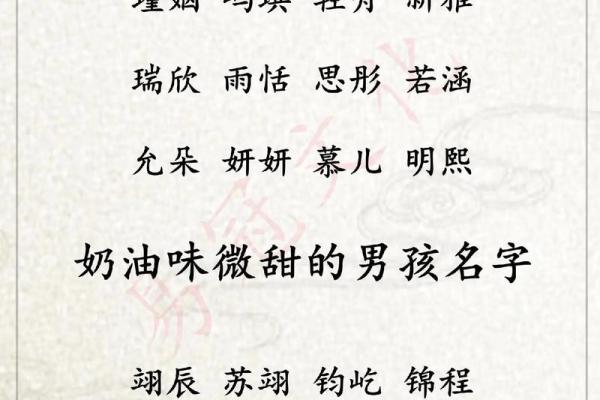 瑞欣 雨恬 思彤 若涵
允朵 妍妍 慕儿 明熙
奶油味微甜的男孩名字
翊辰 苏翊 钧屹 锦程